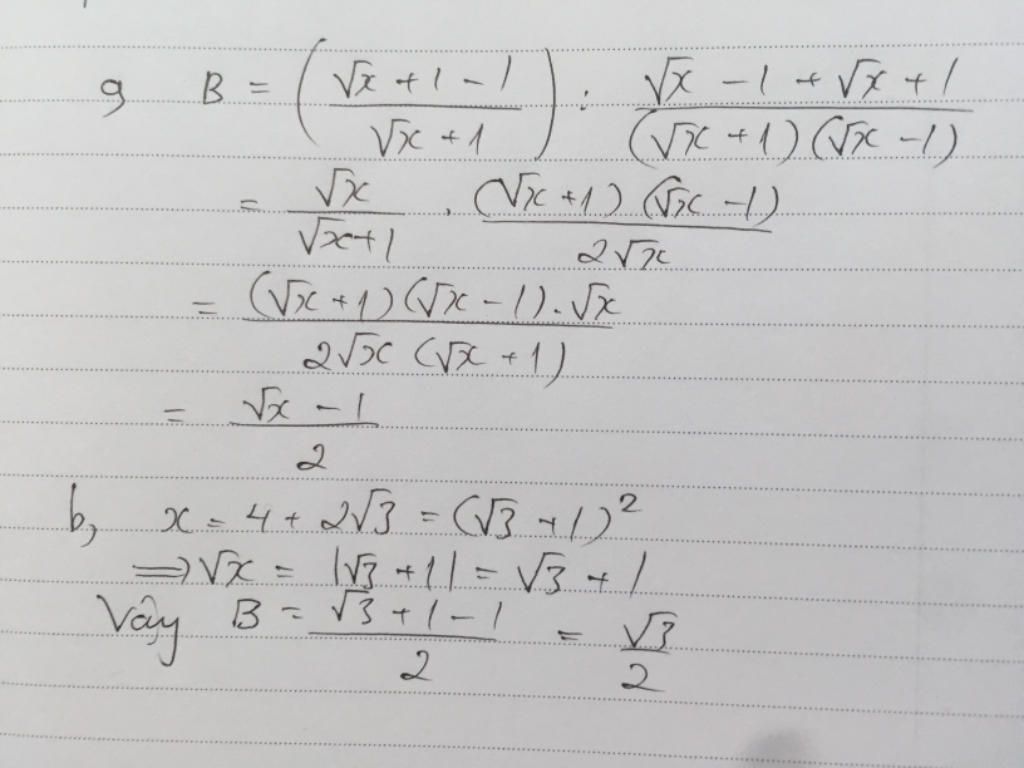 a, B = ((√x + 1 - 1)/(√x + 1)) : (√x - 1 + √x + 1)/((√x + 1)(√x - 1))
= √x/(√x + 1) . ((√x + 1)(√x - 1))/(2√x)
= ((√x + 1)(√x - 1).√x)/(2√x (√x + 1))
= (√x - 1)/2
b, x = 4 + 2√3 = (√3 + 1)²
⇒ √x = |√3 + 1| = √3 + 1
Vậy B = (√3 + 1 - 1)/2 = √3/2